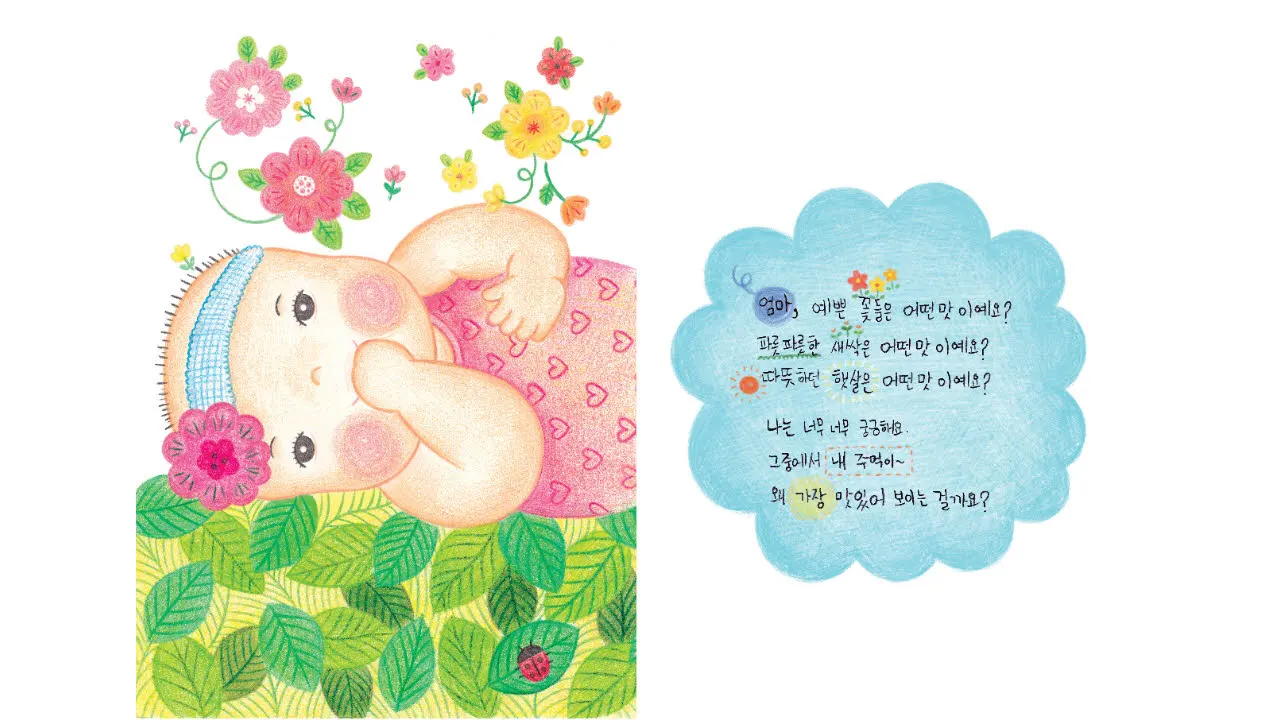 엄마, 예쁜 꽃들은 어떤 맛이예요?
파릇파릇한 새싹은 어떤 맛이예요?
따뜻하던 햇살은 어떤 맛이예요?
나는 너무너무 궁금해요.
그중에서 내 주먹이~
왜 가장 맛있어 보이는 걸까요?